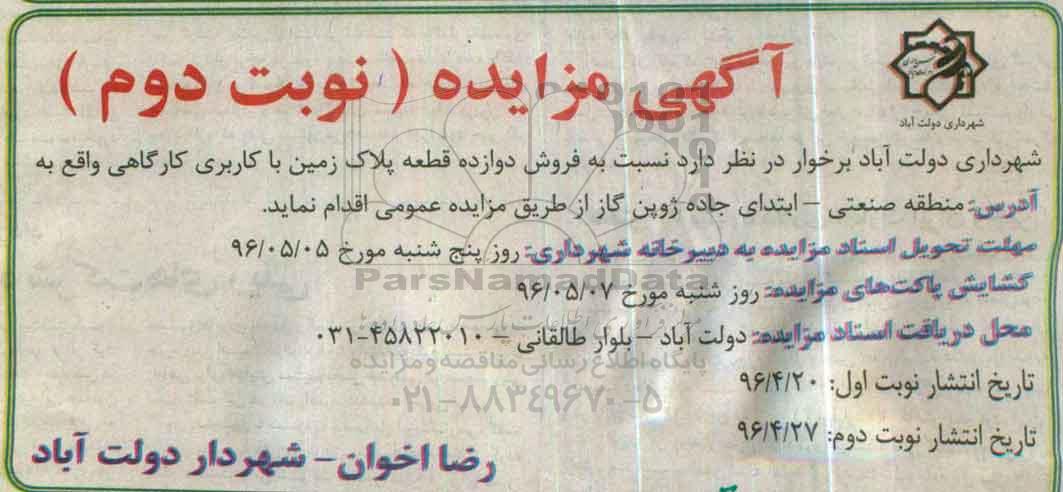 آگهی مزایده ( نوبت دوم )
شهرداری دولت آباد
شهرداری دولت آباد برخوار در نظر دارد نسبت به فروش دوازده قطعه پلاک زمین با کاربری کارگاهی واقع به
آدرس: منطقه صنعتی – ابتدای جاده ژوپن گاز از طریق مزایده عمومی اقدام نماید.
مهلت تحویل اسناد مزایده به دبیرخانه شهرداری: روز پنج شنبه مورخ ۹۶/۰۵/۰۵
ParsNamadData
گشایش پاکت‌های مزایده: روز شنبه مورخ ۹۶/۰۵/۰۷
محل دریافت اسناد مزایده: دولت آباد – بلوار طالقانی – ۴۵۸۲۲۰۱۰-۰۳۱
پایگاه اطلاع رسانی مناقصه و مزایده
تاریخ انتشار نوبت اول: ۹۶/۴/۲۰
۰۲۱-۸۸۳۴۹۶۷۰-۵
تاریخ انتشار نوبت دوم: ۹۶/۴/۲۷
رضا اخوان – شهردار دولت آباد